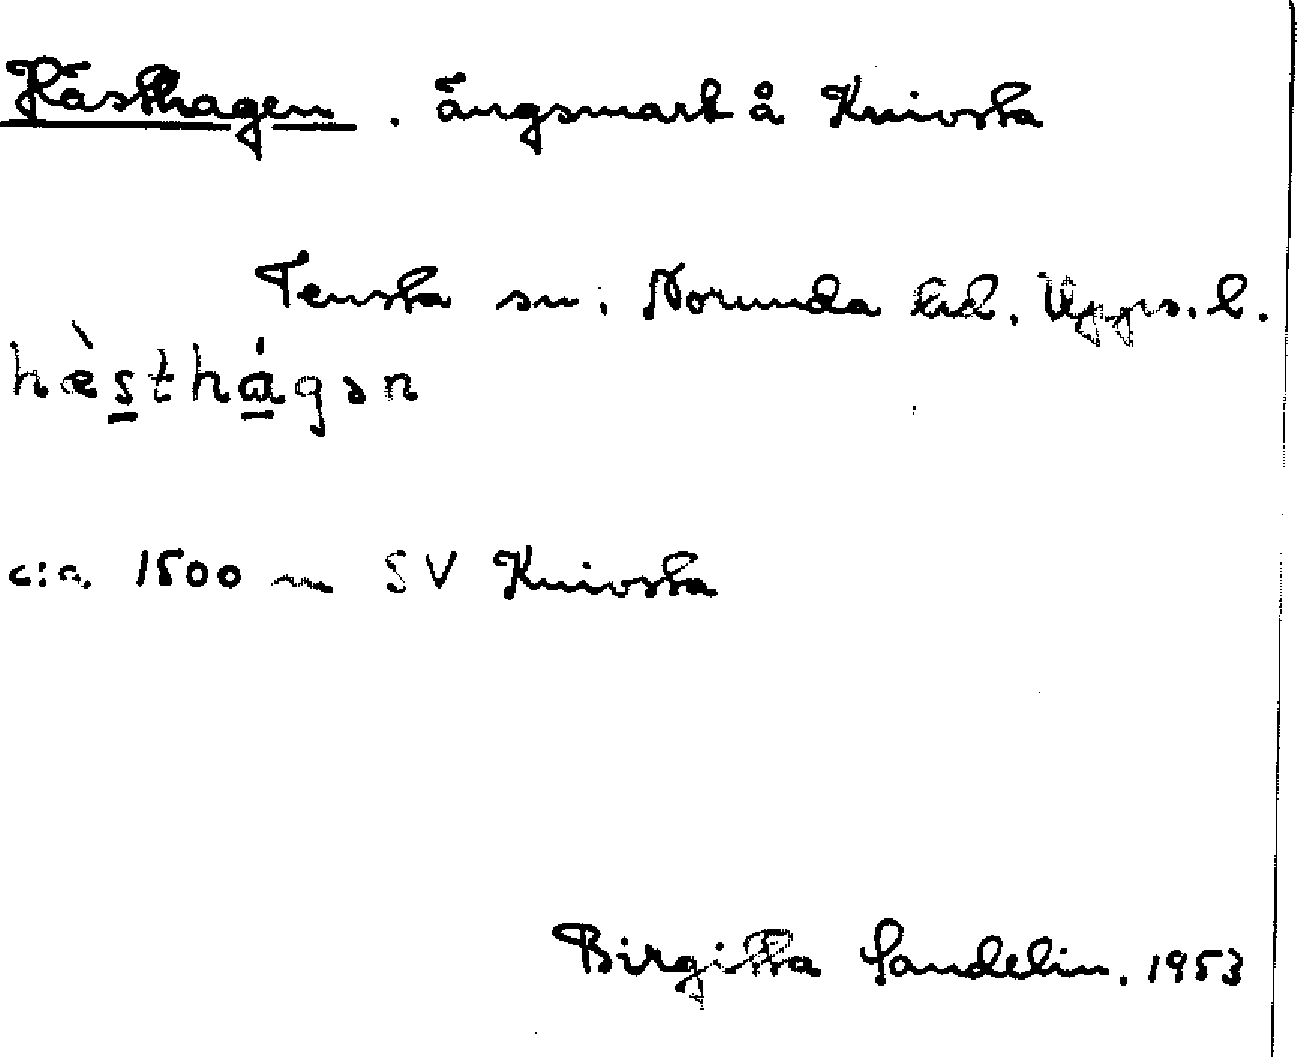 Hästhagen. ängsmark å Knivsta
Tensta sn. Norunda hd. Upps. l.
hæ̀sthágən
c:a 1500 m SV Knivsta
Birgitta Sandelin. 1953